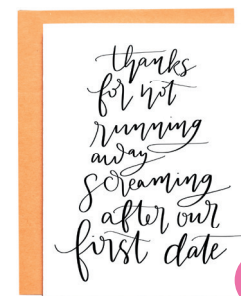 thanks
for not
running
away
screaming
after our
first date